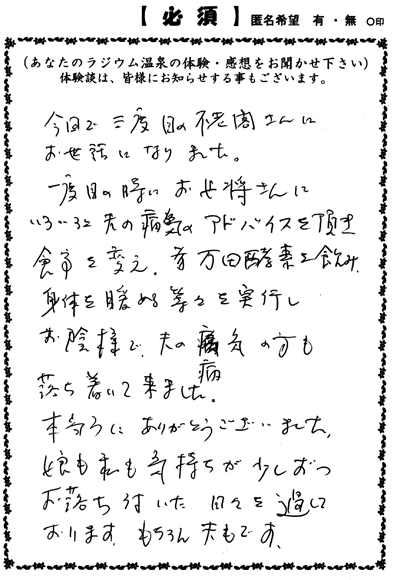 【必須】 匿名希望 有・無 ○印
(あなたのラジウム温泉の体験・感想をお聞かせ下さい)
体験談は、皆様にお知らせする事もございます。
今回で三度目の不老閣さんに
お世話になりました。
一度目の時に お女将さんに
いろいろと夫の病気の アドバイスを頂き
食事を変え、 万田酵素を飲み、
身体を暖める等々を実行し
お陰様で、夫の病気の方も
病
落ち着いて来ました。
本当に ありがとうございました。
娘も私も気持ちが少しずつ
お落ち付いた 日々を過して
おります。もちろん夫もです。